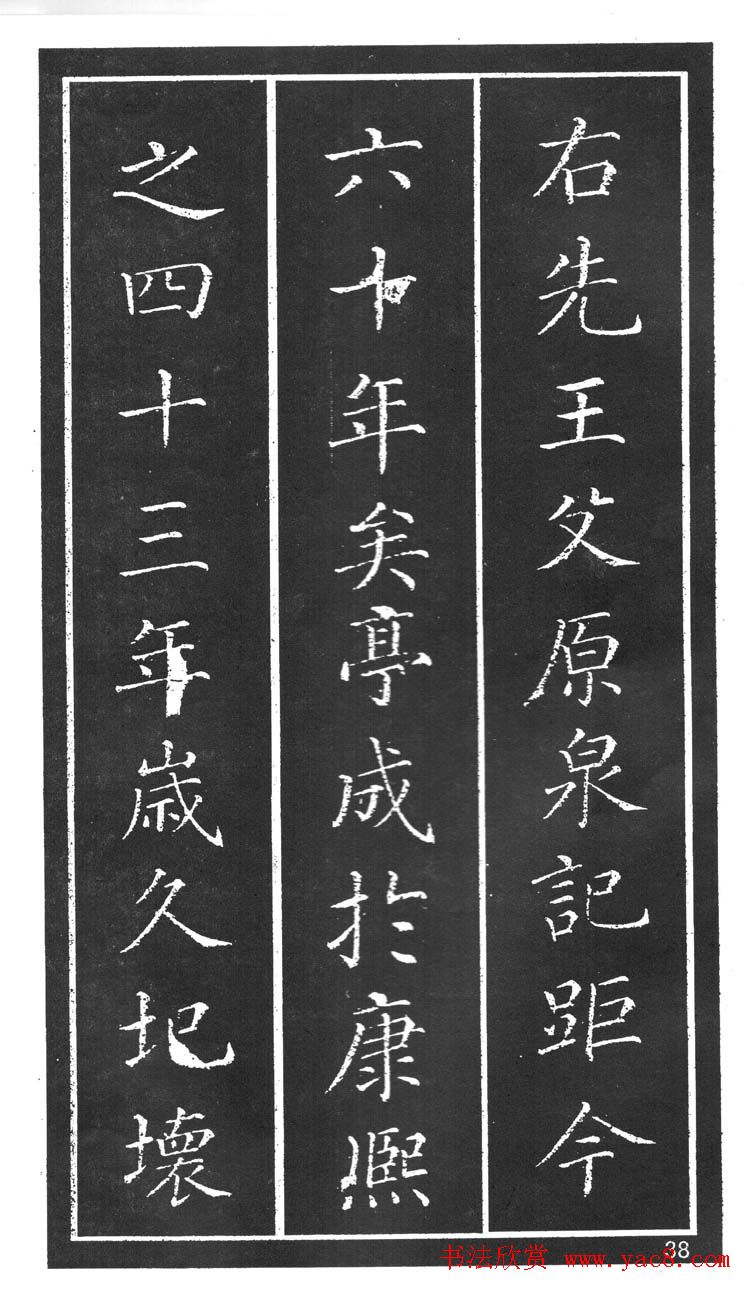 右先王父原泉記距今
六十年矣亭成於康熙
之四十三年歲久圮壞
38
书法欣赏 www.yac8.com